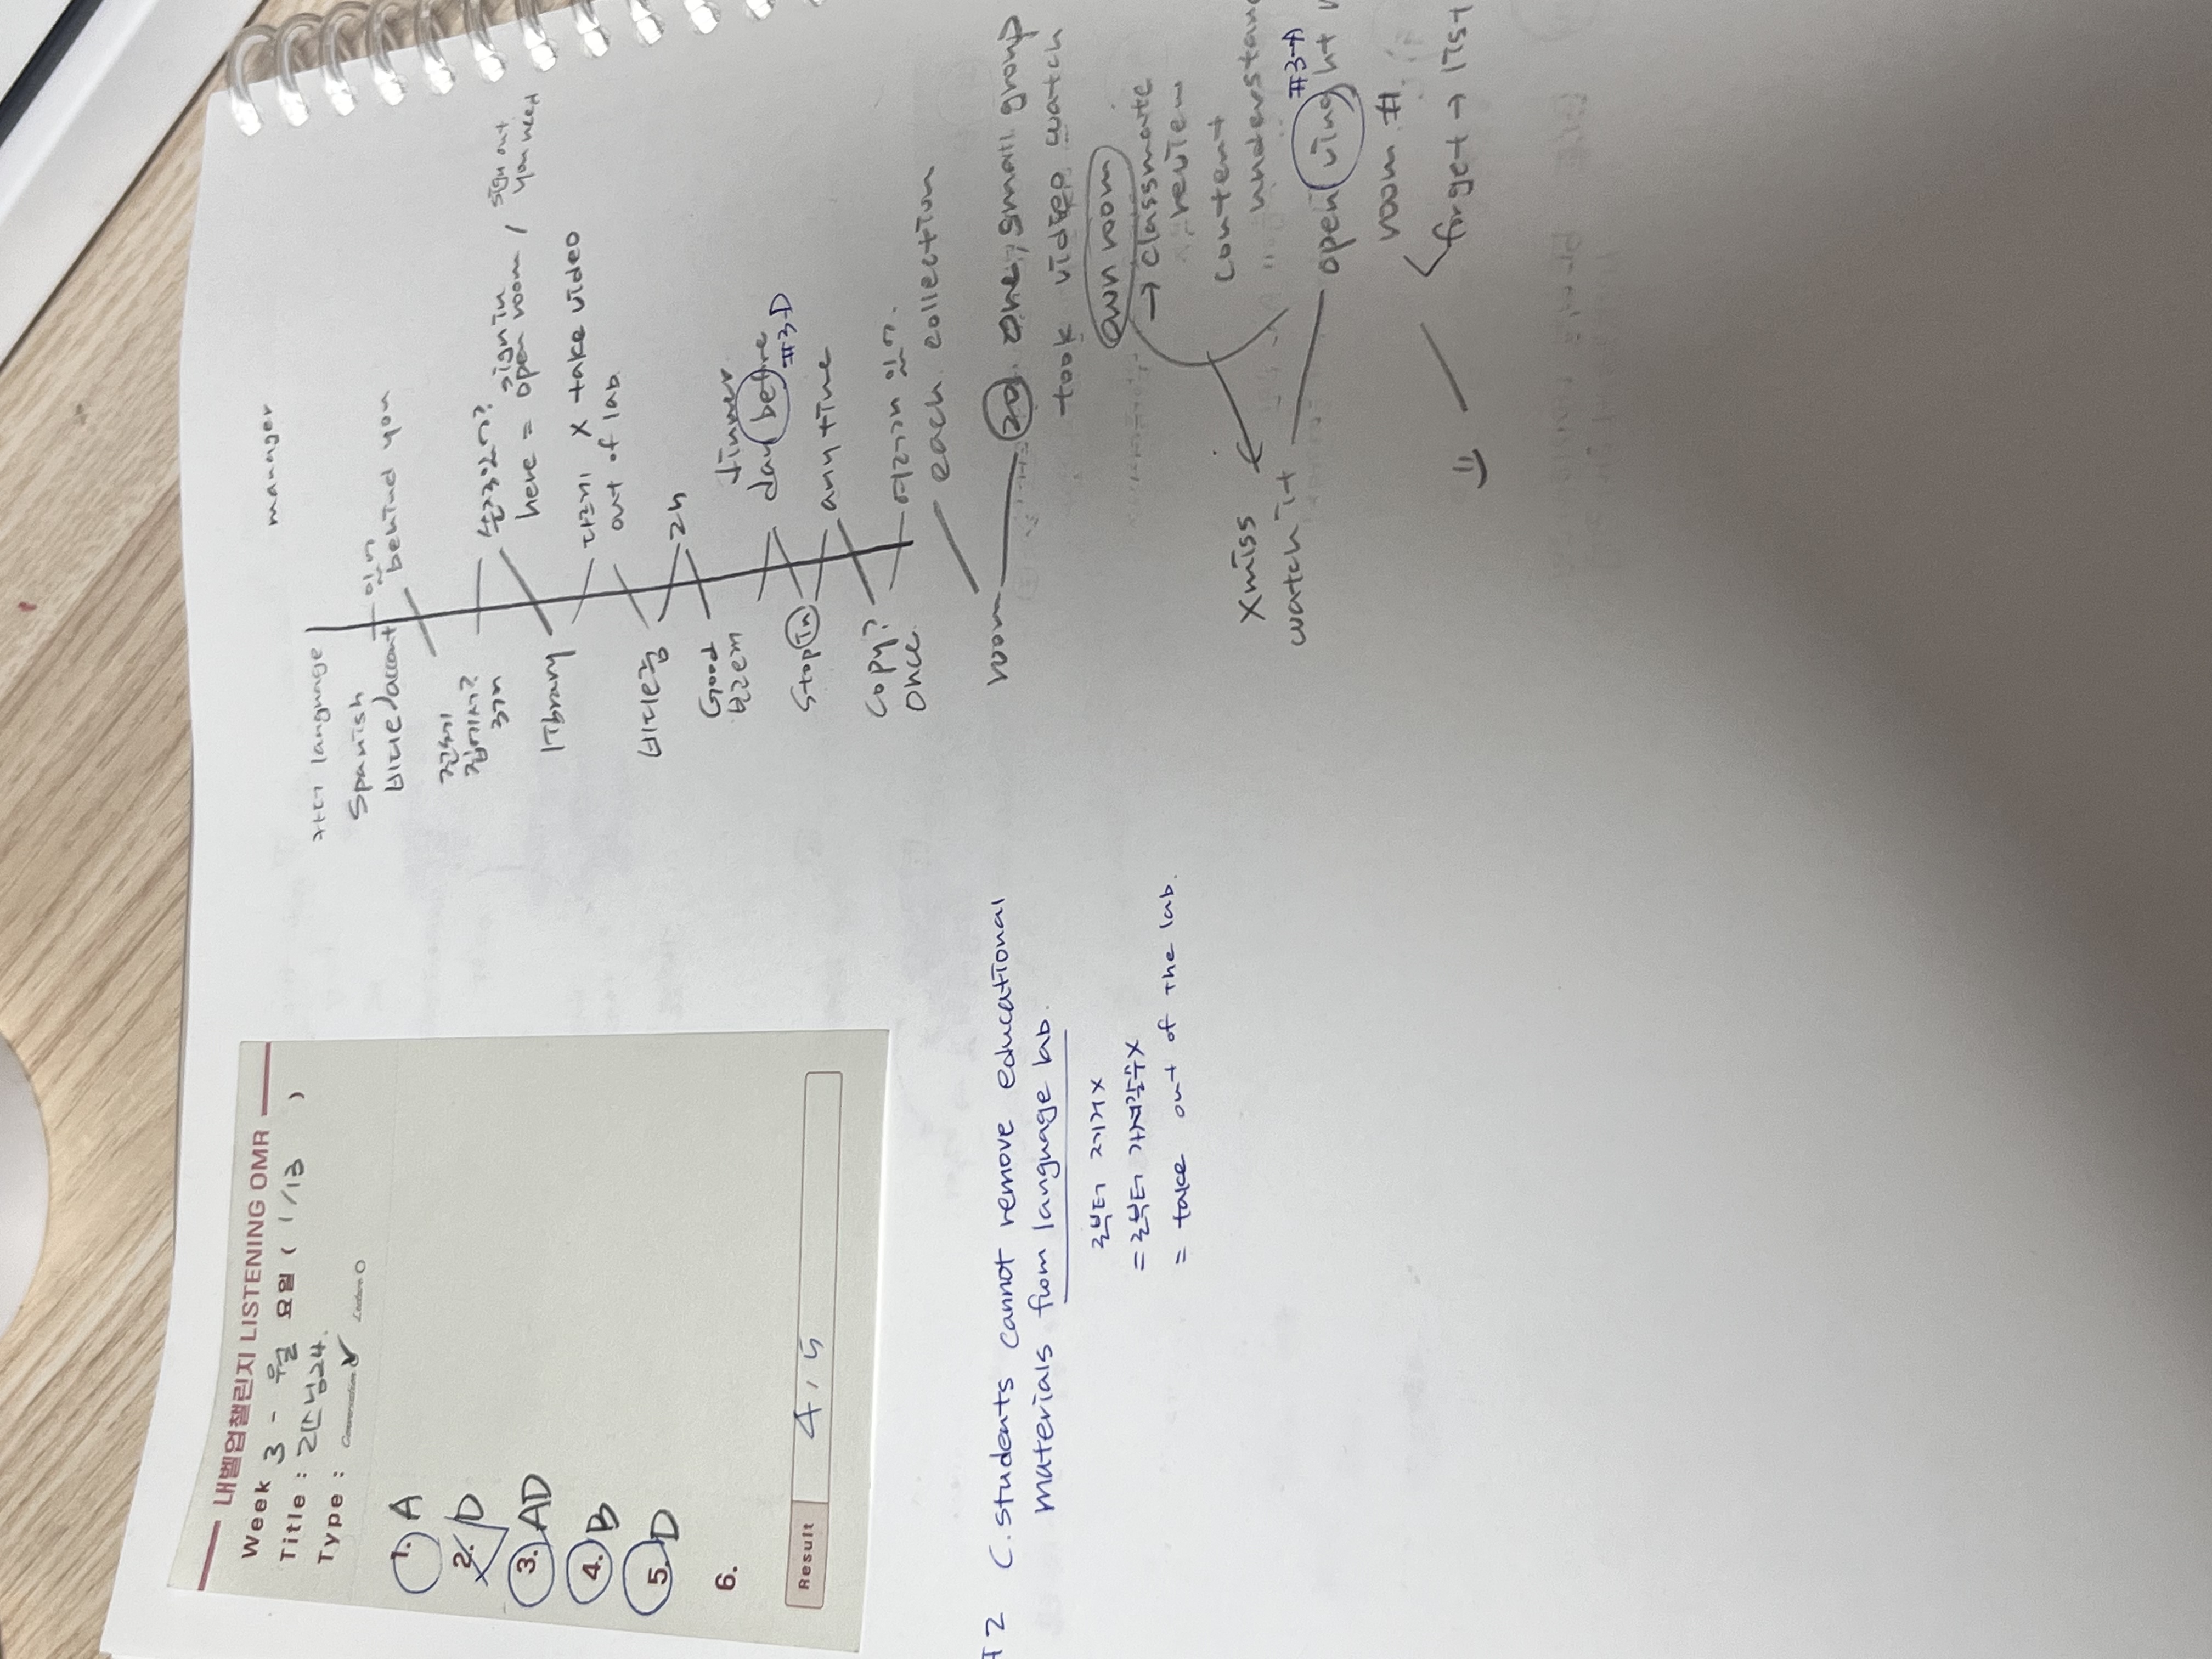 내벨업챌린지 LISTENING OMR
Week 3 - 월 요일 ( 1/13 )
Title :
Type : Conversation Lecture
1. A
2. D
3. AD
4. B
5. D
6.
Result 4 / 5
#2 C. students cannot remove educational
materials from language lab.
로부터 제거X
= 로부터 가져갈수X
= take out of the lab.
manager
language
Spanish
비디오
behind you
sign in
here = open room / sign out
you need
library
take video
out of lab
2h
Good
timer
day before
#3-D
Stop in
any time
copy?
once
each collection
room 20 one, small group
took video watch
own room
→ classmate
review
content
" understand
X miss
watch it
open
#3-A
room #
forget → list